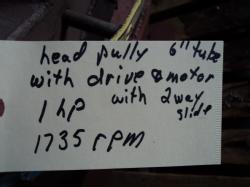 head pully 6" tube
with drive & motor
1 hp with 2 way
slide
1735 rpm